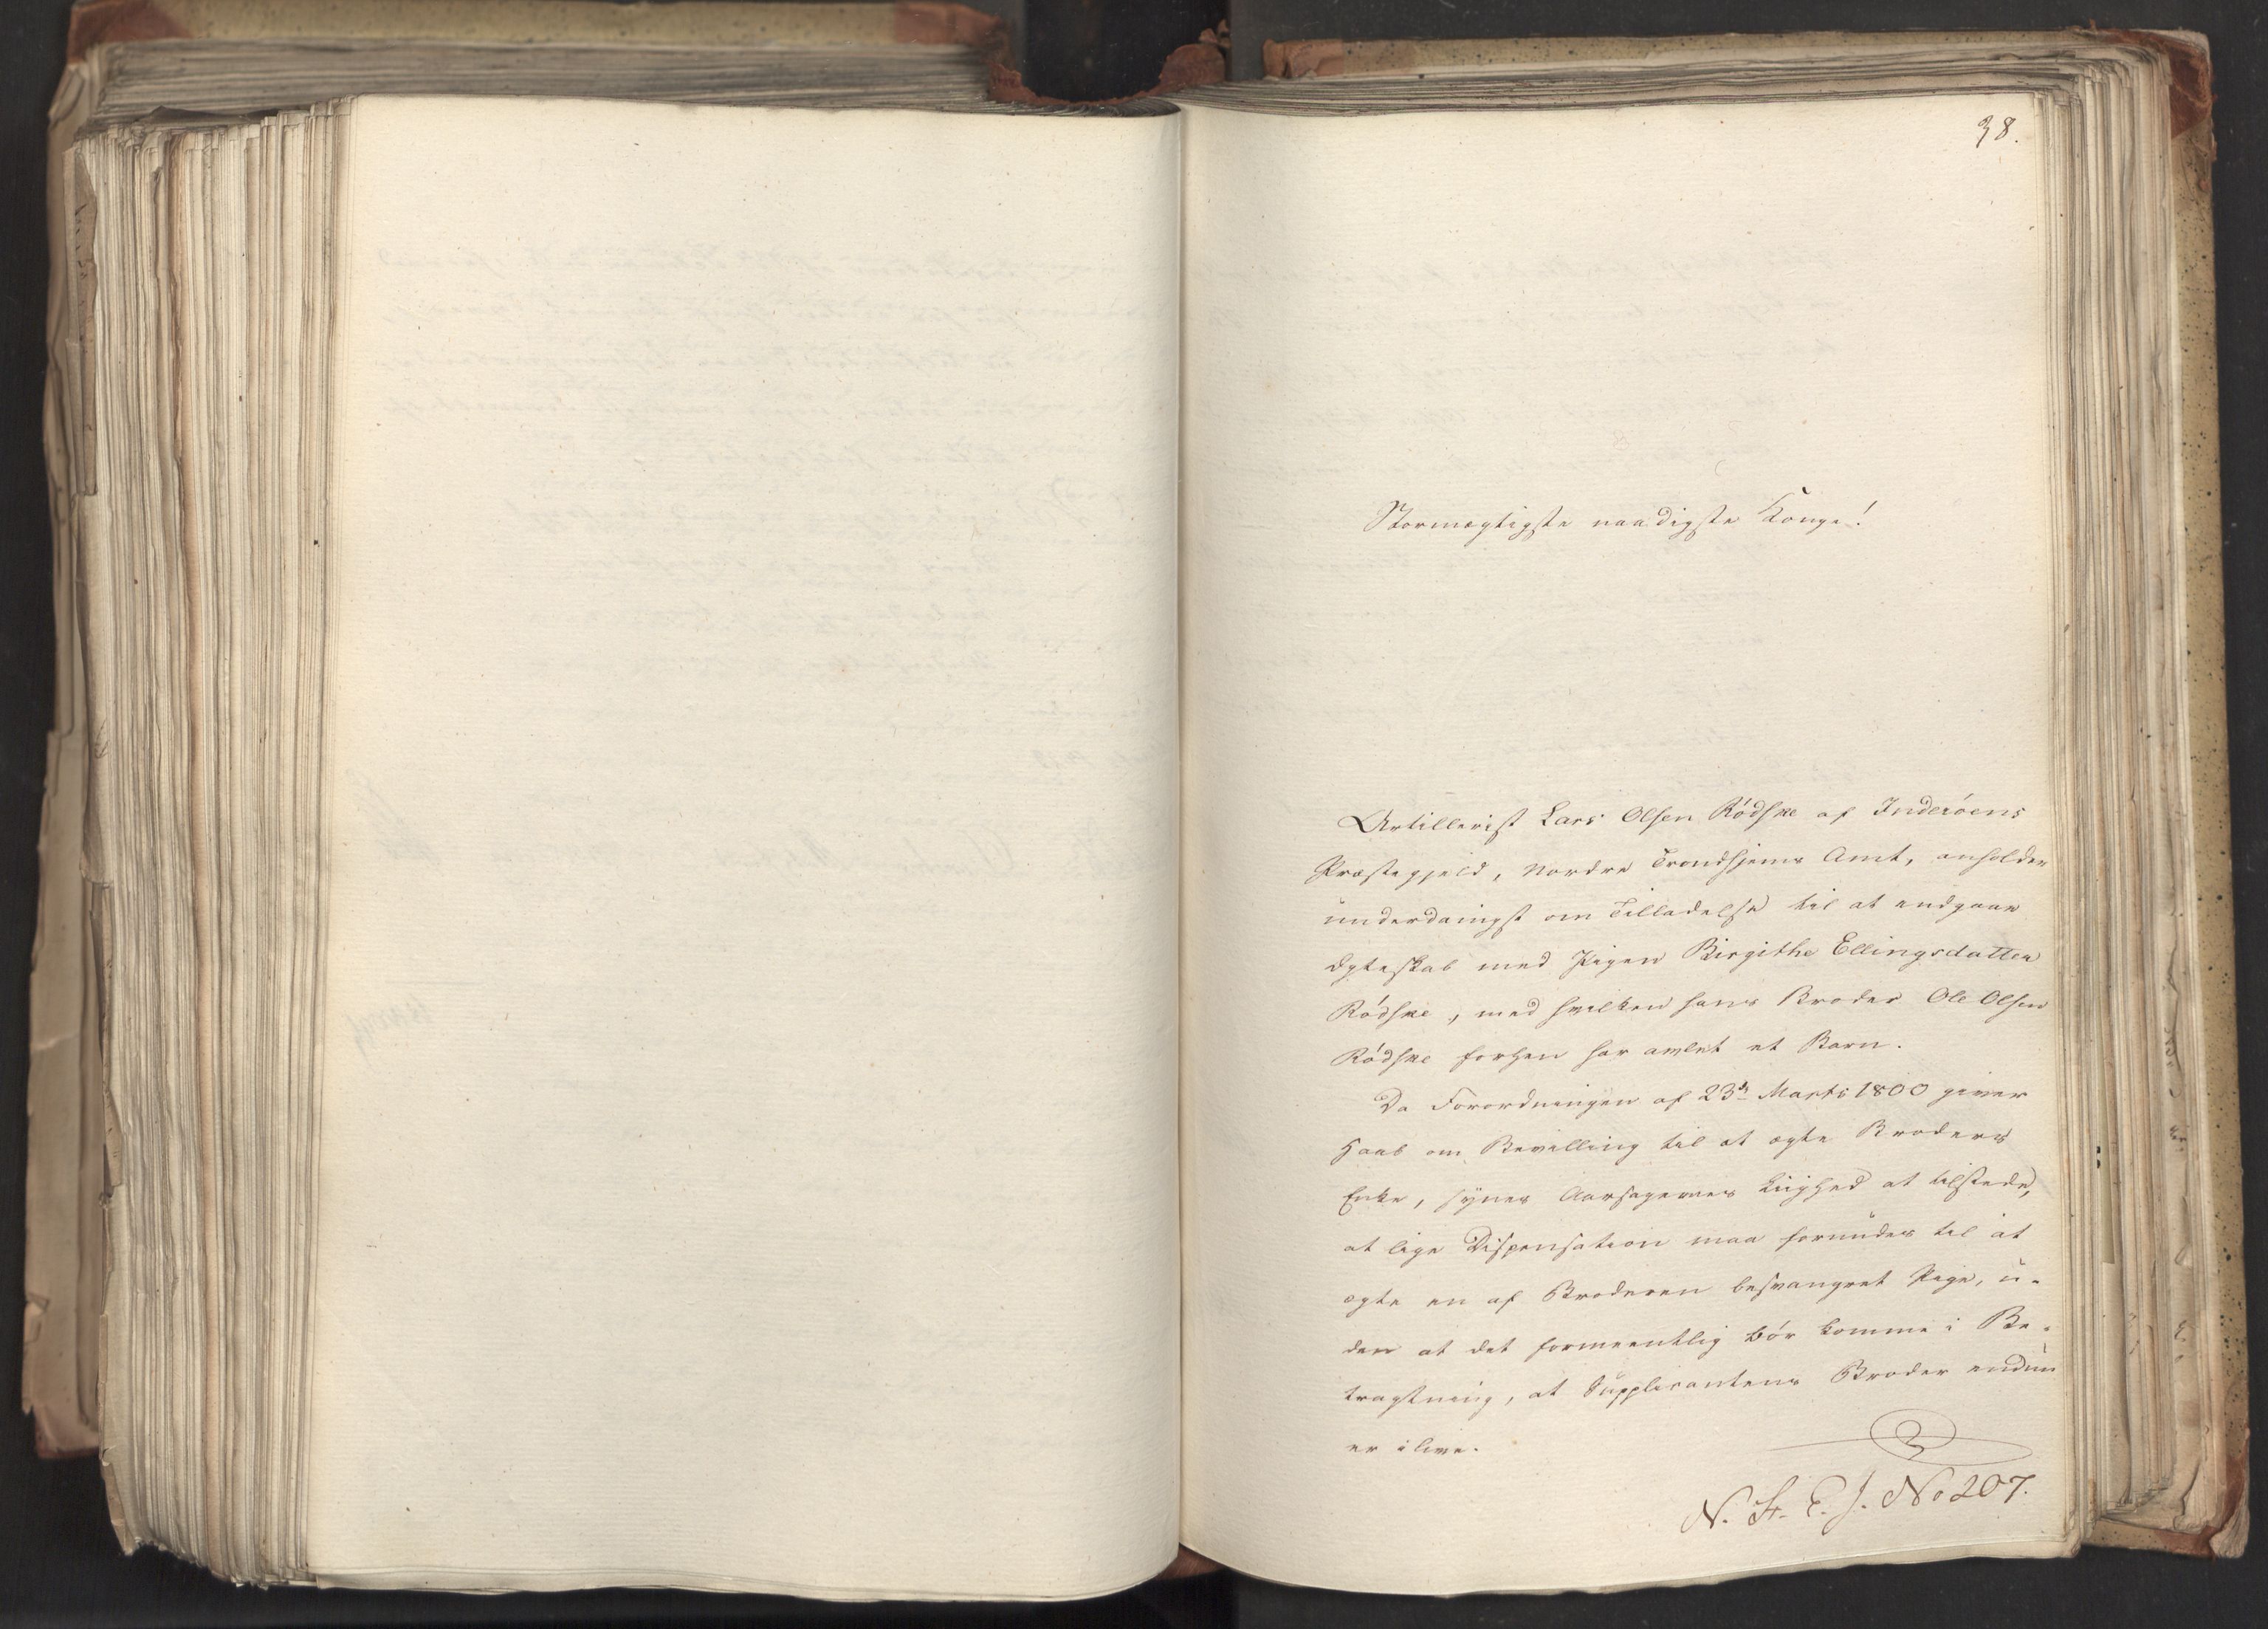 38.
Stormægtigste naadigste Konge!
Artillerist Lars Olsen Rödske af Inderöens
Præstegjeld, Nordre Trondhjems Amt, anholder
underdanigst om Tilladelse til at indgaae
Ægteskab med Pigen Birgithe Ellingsdatter
Rödske, med hvilken hans Broder Ole Olsen
Rödske forhen har avlet et Barn.
Da Forordningen af 23de Marts 1800 giver
Haab om Bevilling til at ægte Broders
Enke, synes Aarsagernes Liighed at tilstede,
at lige Dispensation maa forundes til at
ægte en af Broderen besvangret Pige, u-
den at det formeentlig bör komme i Be-
tragtning, at Supplicantens Broder endnu
er ilive.
N. St. E. J. No 207.